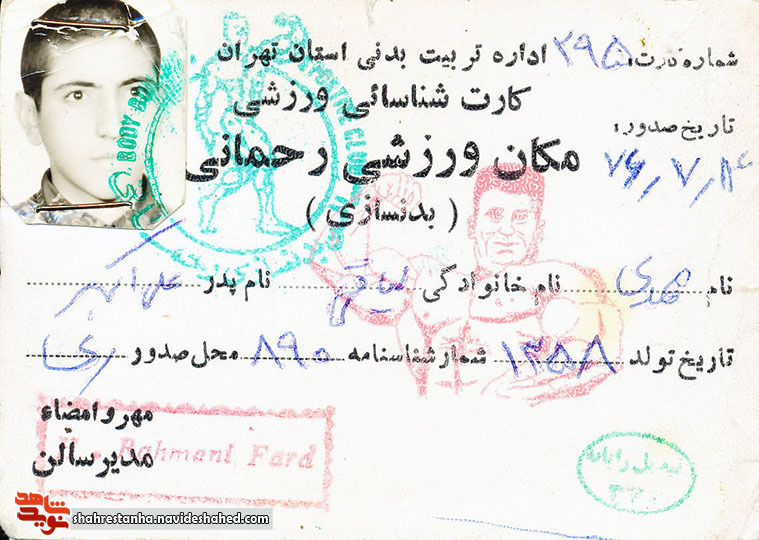 شماره کارت: ۲۹۵ اداره تربیت بدنی استان تهران
کارت شناسائی ورزشی
تاریخ صدور: ۷۶/۷/۱۴
مکان ورزشی رحمانی
( بدنسازی )
نام مهدی نام خانوادگی نام پدر علی اکبر
تاریخ تولد ۱۳۵۸ شمار شناسنامه ۸۹۰ محل صدور ری
مهر و امضاء
مدیر سالن
Rahmani Fard
BODY
CLU
نوید شاهد
shahrestanha.navideshahed.com